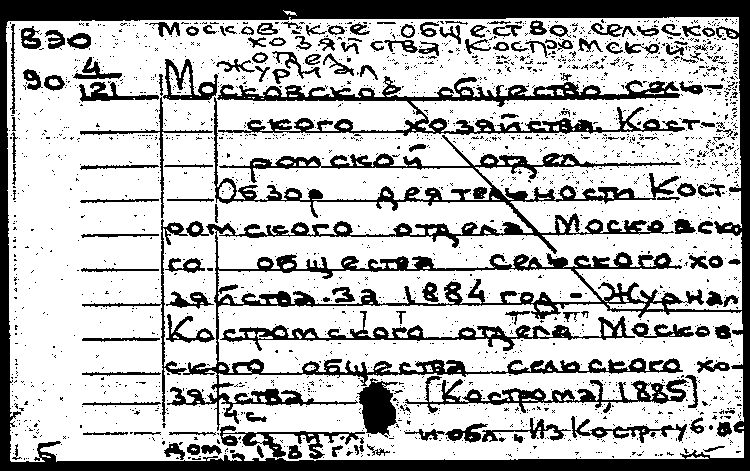 ВЭО
90 4/121
Московское общество сельского
хозяйства Костромской
отдел.
Журнал
Московское общество сель-
ского хозяйства. Кост-
ромской отдел.
Обзор деятельности Кост-
ромского отдела Московско-
го общества сельского хо-
зяйства. За 1884 год. - Журнал
Костромского отдела Москов-
ского общества сельского хо-
зяйства. [Кострома], 1885].
4 с.
Без тит. л. и обл. „Из Костр. губ. ве
1885 г."
Б